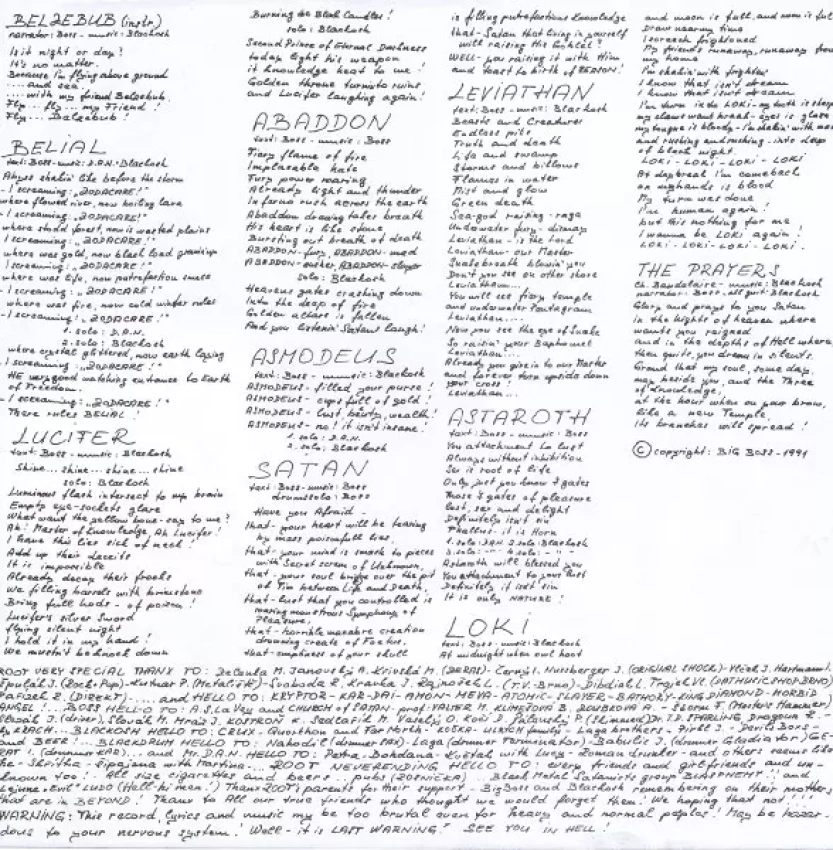 BELZEBUB (instr)
narrator: Boss - music: Blackosh
Is it night or day?
It's no matter.
Because I'm flying above ground
.... and sea.
.... with my friend Belzebub
Fly... fly... my Friend!
Fly... Belzebub!
BELIAL
text: Boss - music: D.A.N. Blackosh
Abyss shakin' like before the storm
- I screaming: "ZODACARE!"
where flowed river, now boiling lava
- I screaming: "ZODACARE!"
where stood forest, now is wasted plains
- I screaming: "ZODACARE!"
where was gold, now black lead
- I screaming: "ZODACARE!"
where was life, now putrefaction smell
- I screaming: "ZODACARE!"
where was fire, now cold winter rules
- I screaming: "ZODACARE!"
1. solo: D.A.N.
2. solo: Blackosh
where crystal glittered, now earth
- I screaming: "ZODACARE!"
HE very good watching entrance to Earth
of Freedom.
- I screaming: "ZODACARE!"
There rules BELIAL!
LUCIFER
text: Boss - music: Blackosh
Shine... shine... shine... shine
solo: Blackosh
Luminous flash intersect to my brain
Empty eye-sockets glare
What want the yellow bone - say to me?
Ah! Master of knowledge, Ah Lucifer!
I have this lies sick of neck!
Add up their deceits
It is impossible
Already decay their
We filling barrels with brimstone
Bring full - of poison!
Lucifer's silver Sword
flying silent night
I hold it in my hand!
We mustn't be knock down
Burning the Black Candles!
solo: Blackosh
Second Prince of Eternal Darkness
today light his weapon
it knowledge heat to me!
Golden throne turn to ruins
and Lucifer laughing again!
ABADDON
text: Boss - music: Boss
Fiery flame of fire
Implacable hate
Fury power roaring
Already light and thunder
Inferno rush across the earth
Abaddon drawing takes breath
His heart is like stone
Bursting out breath of death
ABADDON - fury, ABADDON - mad
ABADDON - , ABADDON - slayer
solo: Blackosh
Heavens gates crashing down
Into the deep of fire
Golden altars is fallen
And you listenin' Satan's laugh!
ASMODEUS
text: Boss - music: Blackosh
ASMODEUS - filled your purse!
ASMODEUS - cups full of gold!
ASMODEUS - lust, beauty, wealth!
ASMODEUS - no! it isn't insane!
1. solo: D.A.N.
2. solo: Blackosh
SATAN
text: Boss - music: Boss
drumsolo: Boss
Have you Afraid -
that - your heart will be tearing
by mass poisonful lies,
that - your mind is smash to pieces
with Secret screw of Unknown,
that - your soul bridge over the pit
of Tim between Life and Death,
that - lust that you controlled is
roaring monstrous Symphony of
Pleasure,
that - horrible macabre creation
drowning create of
that - emptness of your skull
is filling putrefactions knowledge
that - Satan that living in yourself
will raising His Goblet!
WELL - you raising it with Him
and toast to birth of
LEVIATHAN
text: Boss - music: Blackosh
Beasts and Creatures
Endless pile
Truth and death
Life and swamp
Storms and billows
Flamings in water
Mist and glow
Green death
Sea-god raising - rage
Underwater fury - dismay
Leviathan - is the Lord
Leviathan - our Master
Snake breath blowin' you
Don't you see on other shore
Leviathan...
You will see fiery temple
and underwater Pentagram
Leviathan...
Now you see the eye of Snake
So raisin' your Baphomet
Leviathan...
Already you give in to our Master
and forever turn upside down
your cross!
Leviathan...
ASTAROTH
text: Boss - music: Boss
You attachment to lust
Always without inhibition
Sex is root of life
Only just you know 7 gates
Those 7 gates of pleasure
lust, sex and delight
Definitely isn't sin
Phallus - it is Horn
1. solo: D.A.N. 2. solo: Blackosh
3. solo: -"- 4. solo: -"-
Astaroth will blessed you
You attachment to your lust
Definitely it isn't sin
It is only NATURE!
LOKI
text: Boss - music: Blackosh
At midnight when owl hoot
and moon is full, and moon is full
Draw nearing time
I screech frightened
My friends runaway, runaway from
my home
I'm shakin' with frighten'
I know that isn't dream
I know that isn't dream
I'm turn into LOKI - my tooth is sharp
my claws want break - eyes is glare
my tongue is bloody - I'm shakin' with
and rushing and rushing - into deep
of black night.
LOKI - LOKI - LOKI - LOKI
At daybreak I'm comeback
on my hands is blood
My turn was done
I'm human again!
but this nothing for me
I wanna be LOKI again!
LOKI - LOKI - LOKI - LOKI.
THE PRAYERS
Ch. Baudelaire - music: Blackosh
narrator: Boss. all guit: Blackosh
Glory and prays to you Satan
in the hights of heaven where
wants you raigned
and in the depths of Hell where,
then quits, you dream in silents.
Grand that my soul, some day,
may beside you, and the Three
of Knowledge,
at the hour when on your brow,
like a new Temple,
its branches will spread!
© copyright: BIG BOSS - 1991
ROOT VERY SPECIAL THANX TO: DeCoula M. Janovský A. Krivská M. (DEBAS) - Černý I. Nussberger J. (ORIGINAL SHOCK) - Vlček J. Hartmann I.
J. (Rock + Pop) - P. (Metališ) - Svoboda R. Kravka J. L. (T.V. Brno) - Dibdiak L. Trojek Vl. (PATHVEIC SHOP BRNO)
Z. (DIREKT) ...... and HELLO TO: KRYPTOR - KAR - DAI - AMON - MEVA - ATOMIC - SLAYER - BATHORY - KING DIAMOND - MORBID
ANGEL! ... BOSS HELLO TO: A.S. La Vey and CHURCH of SATAN - prof. VALTER M. KLIMEŠOVÁ B. DOUBKOVÁ A. - Storm F. (Markus Hammer)
J. (driver), Slovák M. Mráz J. KOSTROŇ K. Sedlařík M. Veselý O. Koči D. P. Dr. T.D. STARLING, Dragoun R. -
by KRACH... BLACKOSH HELLO TO: CRUX - Quorthon and Far North - KOČKA - ULRYCH family - Laga brothers - Pirkl J. - Boss -
and BEER!... BLACKDRUM HELLO TO: Nahodil (drummer FAX) - Laga (drummer Terminator) - Babulic J. (drummer Gladiator) -
(drummer E.A.R.) ... and Mr. D.A.N. HELLO TO: Petra - Bohdana - Květal - Fat Lucy - Roman and others seems like
he Skritka - Pipajana with Martina - ROOT NEVERENDING HELLO TO: every friends and girlfriends and un-
known too! - All size cigarettes and beers - pubs (ROSNIČKA) - Black Metal Satanists group BLASPHEMY!! and
"Evil" LUDO (Hall - hi men!) Thanx ROOT's parents for their support - Big Boss and Blackosh remembering on their mothers
that are in BEYOND! Thanx to All our true friends who thought we would forget them! We hoping that not!!!
WARNING: This record, lyrics and music my be too brutal even for heavy and normal peoples! May be hazar-
dous to your nervous system! Well - it is LAST WARNING! SEE YOU IN HELL!